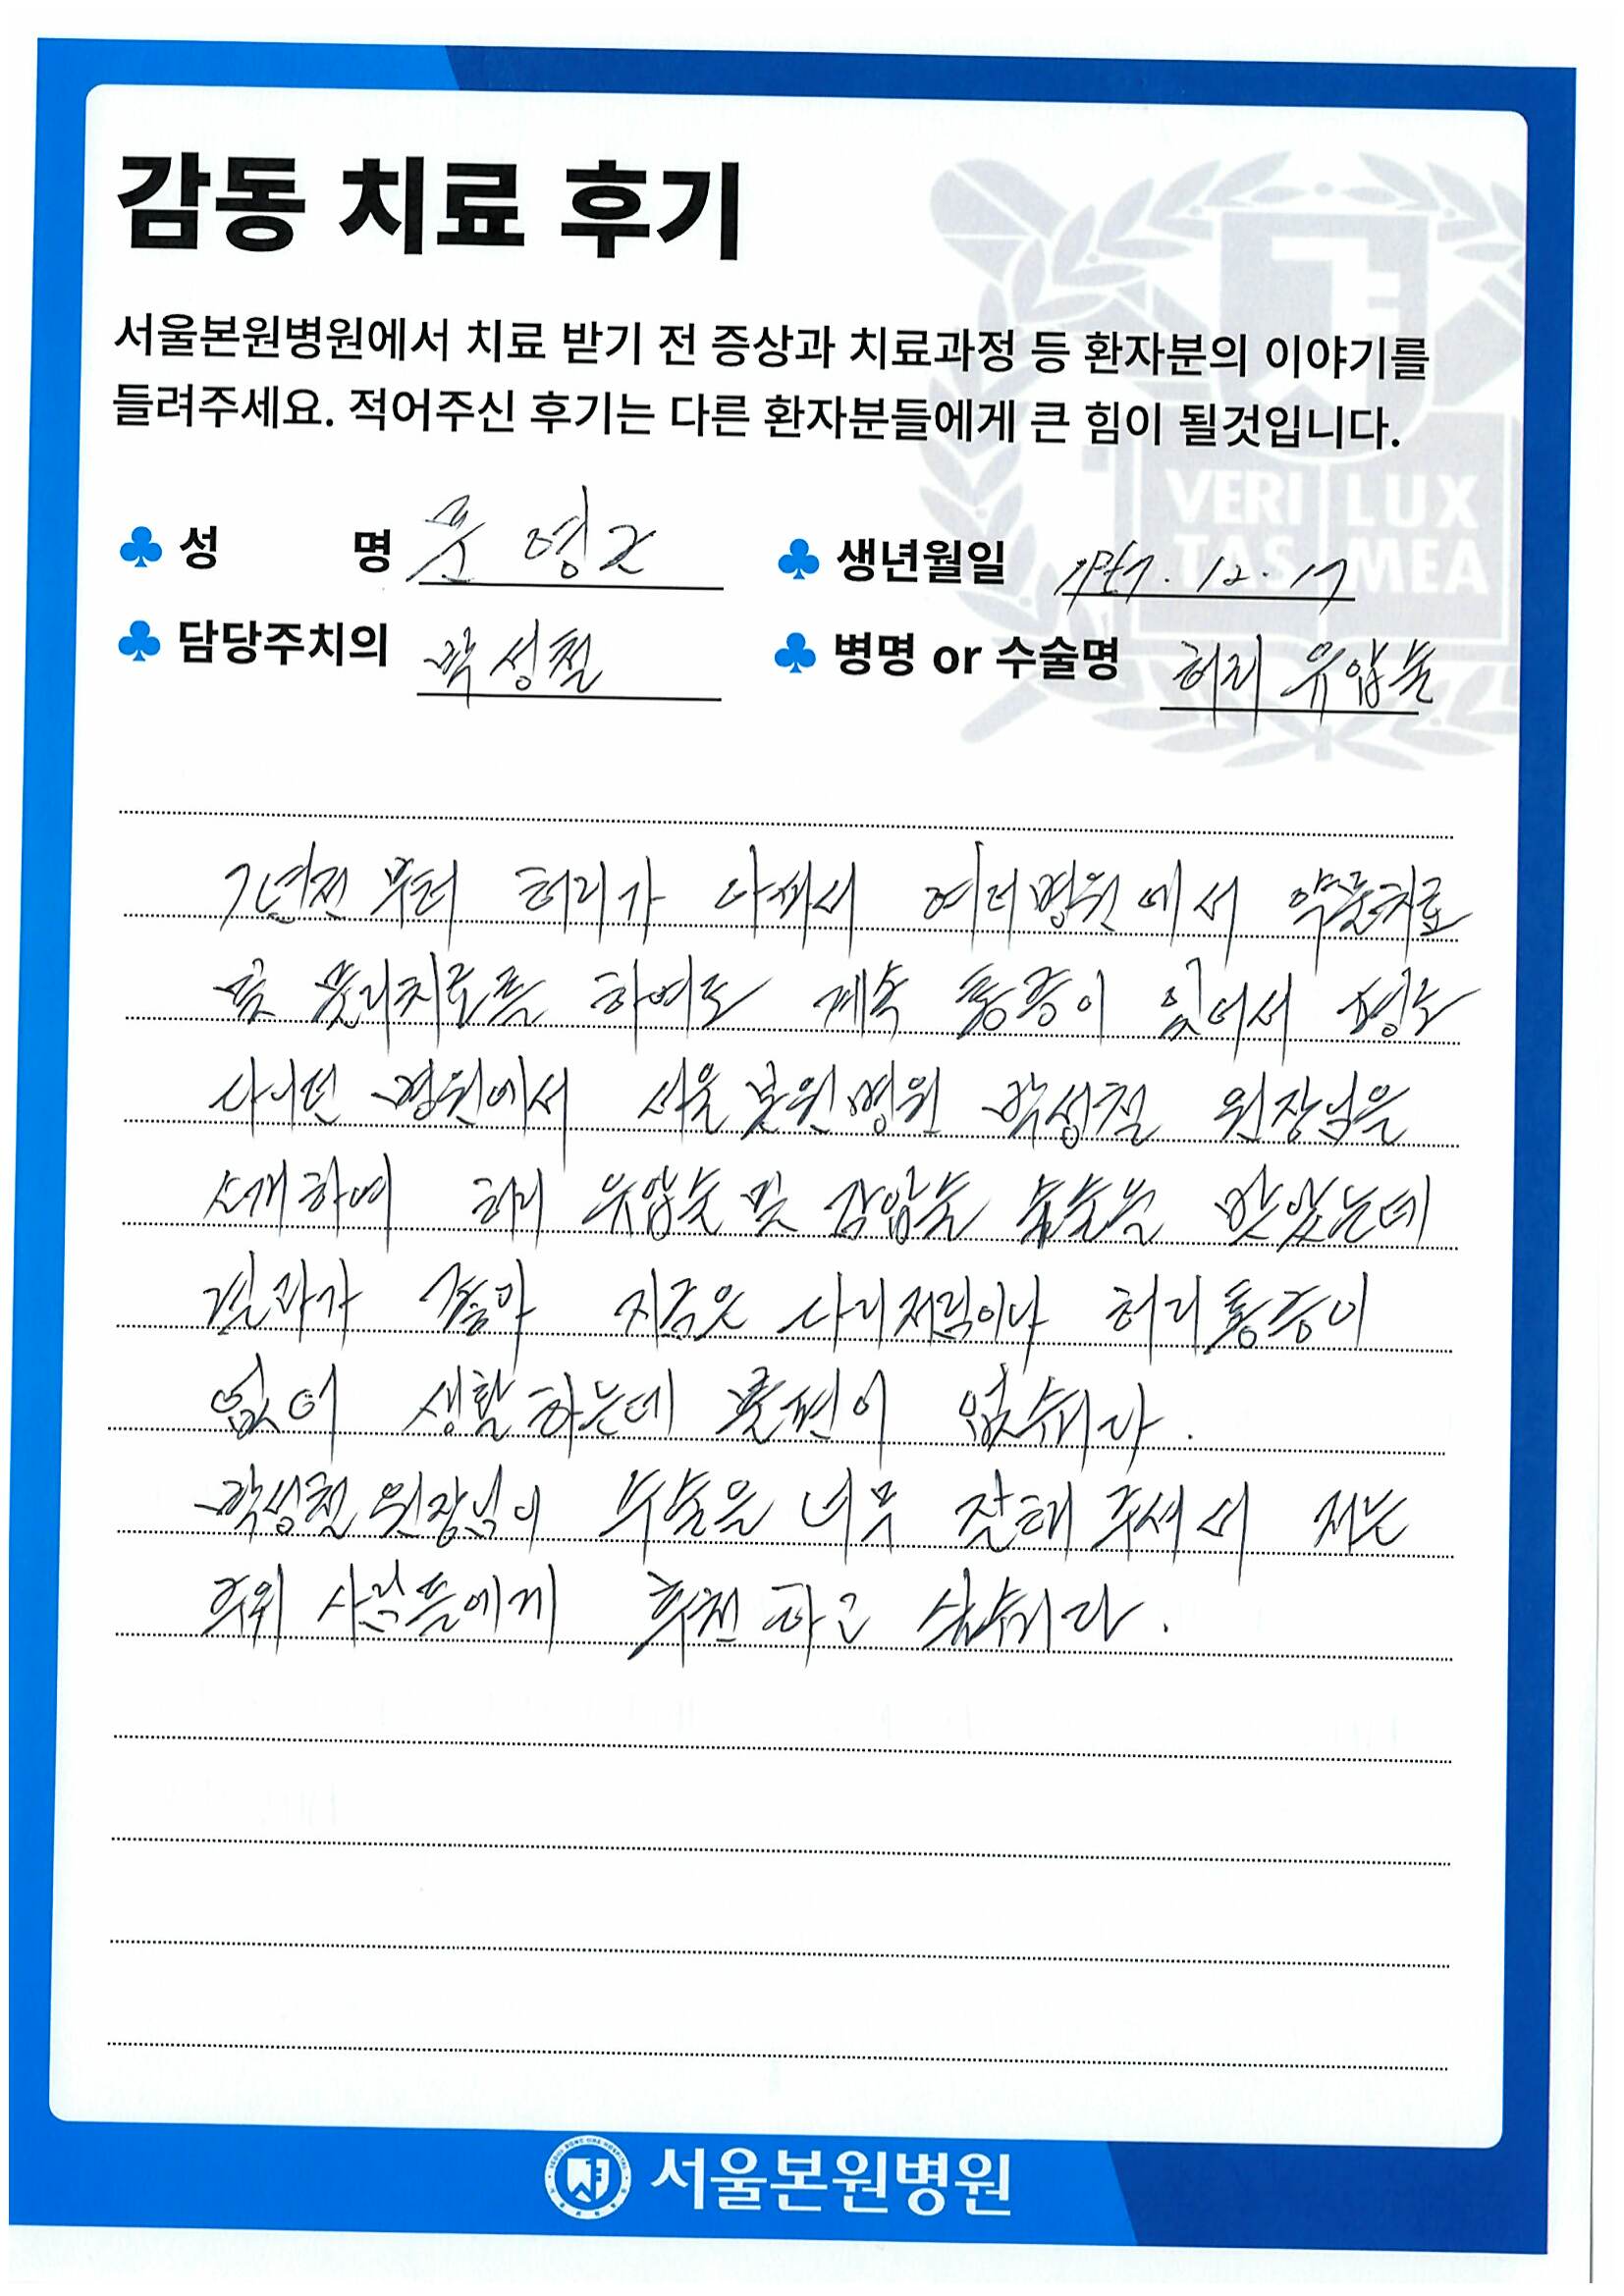 감동 치료 후기
서울본원병원에서 치료 받기 전 증상과 치료과정 등 환자분의 이야기를
들려주세요. 적어주신 후기는 다른 환자분들에게 큰 힘이 될것입니다.
VERI LUX
TAS MEA
성 명 문영근 생년월일 12.17
담당주치의 박성철 병명 or 수술명 허리 유압술
7년전 부터 허리가 아파서 여러병원에서 약물치료
및 물리치료를 하여도 계속 통증이 있어서 평소
다니던 병원에서 서울본원병원 박성철 원장님을
소개하여 허리 유압술 및 감압술 수술을 받았는데
결과가 좋아 지금은 다리저림이나 허리통증이
없이 생활하는데 불편이 없습니다.
박성철 원장님이 수술을 너무 잘해 주셔서 저는
주위 사람들에게 추천하고 싶습니다.
서울본원병원